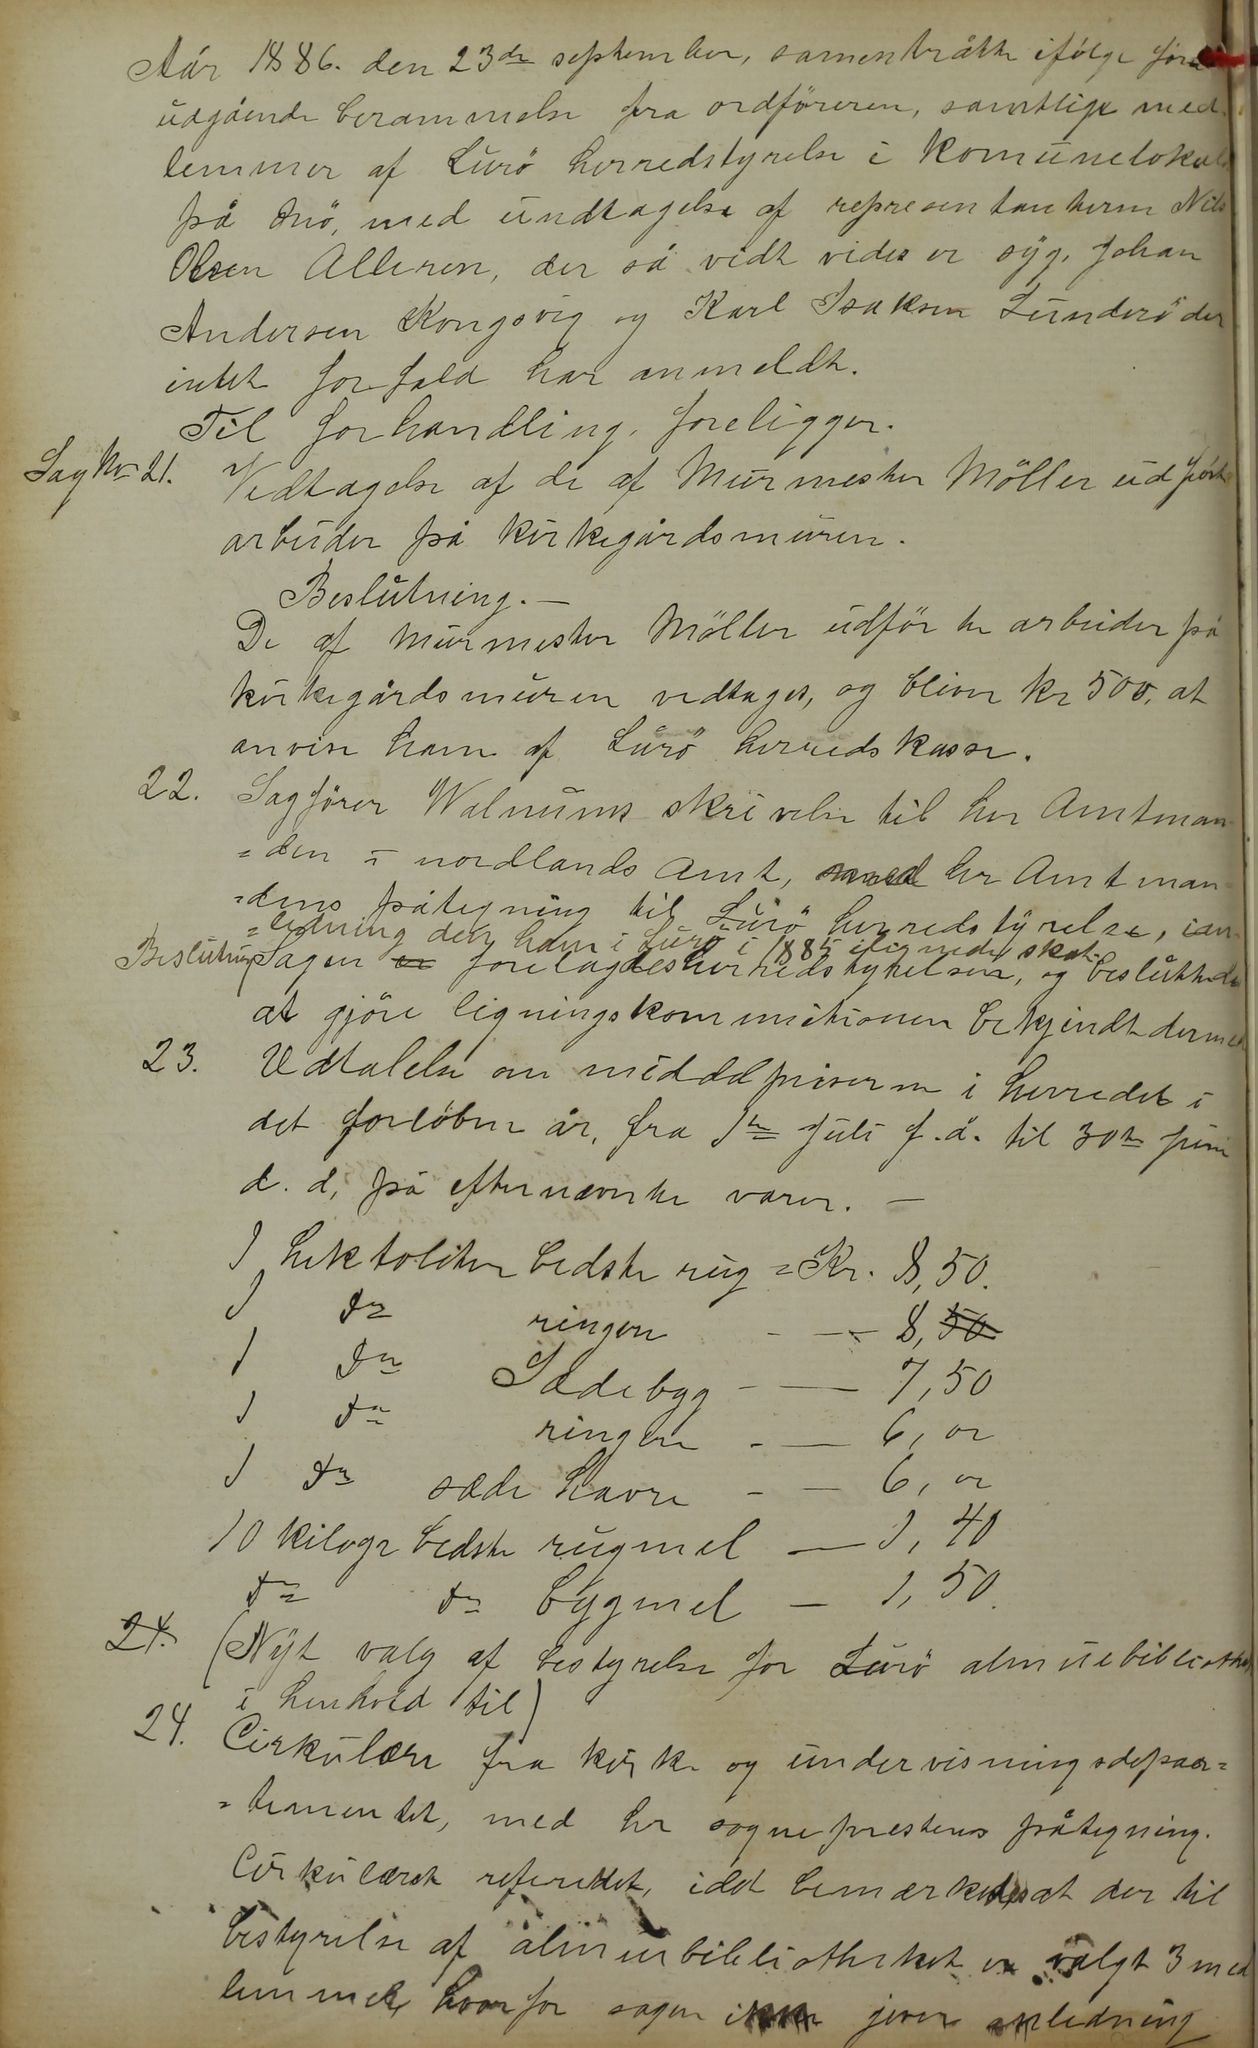 Aår 1886. den 23de september, samentråtte ifølge foru
udgående berammelse fra ordføreren, samtlige med
lemmer af Lurö herredstyrelse i komunelokale
på Onö, med undtagelse af representanterne Nils
Olsen Alleren, der så vidt vides er syg, Johan
Andersen Kongsvig og Karl Isaksen Lunderö der
intet forfald har anmeldt.
Til forhandling foreligger.
Sag No 21. Vedtagelse af de af Murmester Möller udförte
arbeider på kirkegårdsmuren.
Beslutning. —
De af Murmester Möller udförte arbeider på
kirkegårdsmuren vedtages, og bliver kr 500, at
anvise ham af Lurö herredskasse.
22. Sagförer Walnums skrivelse til her Amtman
=den i nordlands Amt, med hr Amtman
=dens påtegning til Lurö herredstyrelse, ian
=ledning den ham i Lurö i 1885 ilignede skat
Beslutning Sagen er forelagdes herredstyrelsen, og besluttedes
at gjöre ligningskommisionen bekjendt dermed
23. Udtalelse om middelpriserne i herredet i
det forløbne år, fra 1ste Juli f.å. til 30te juni
d. d, på efternævnte varer. —
1 hektoliter bedste rug = Kr. 8,50.
1 do ringere - — 8, 50
1 do Sædebyg - — 7,50
1 do ringere - — 6, oo
1 do sæde havre - — 6, oo
10 kilogr bedste rugmel — 1, 40
do do bygmel — 1, 50.
24. (Nyt valg af bestyrelse for Lurö almuebibliothek
i henhold til)
24. Cirkulære fra kirke og undervisningsdepar=
=tementet, med hr sogneprestens påtegning.
Cirkulæret referertet, idet bemærkedes at der til
bestyrelse af almuebibliotheket er valgt 3 med
lemmer hvorfor sagen ikke giver anledning